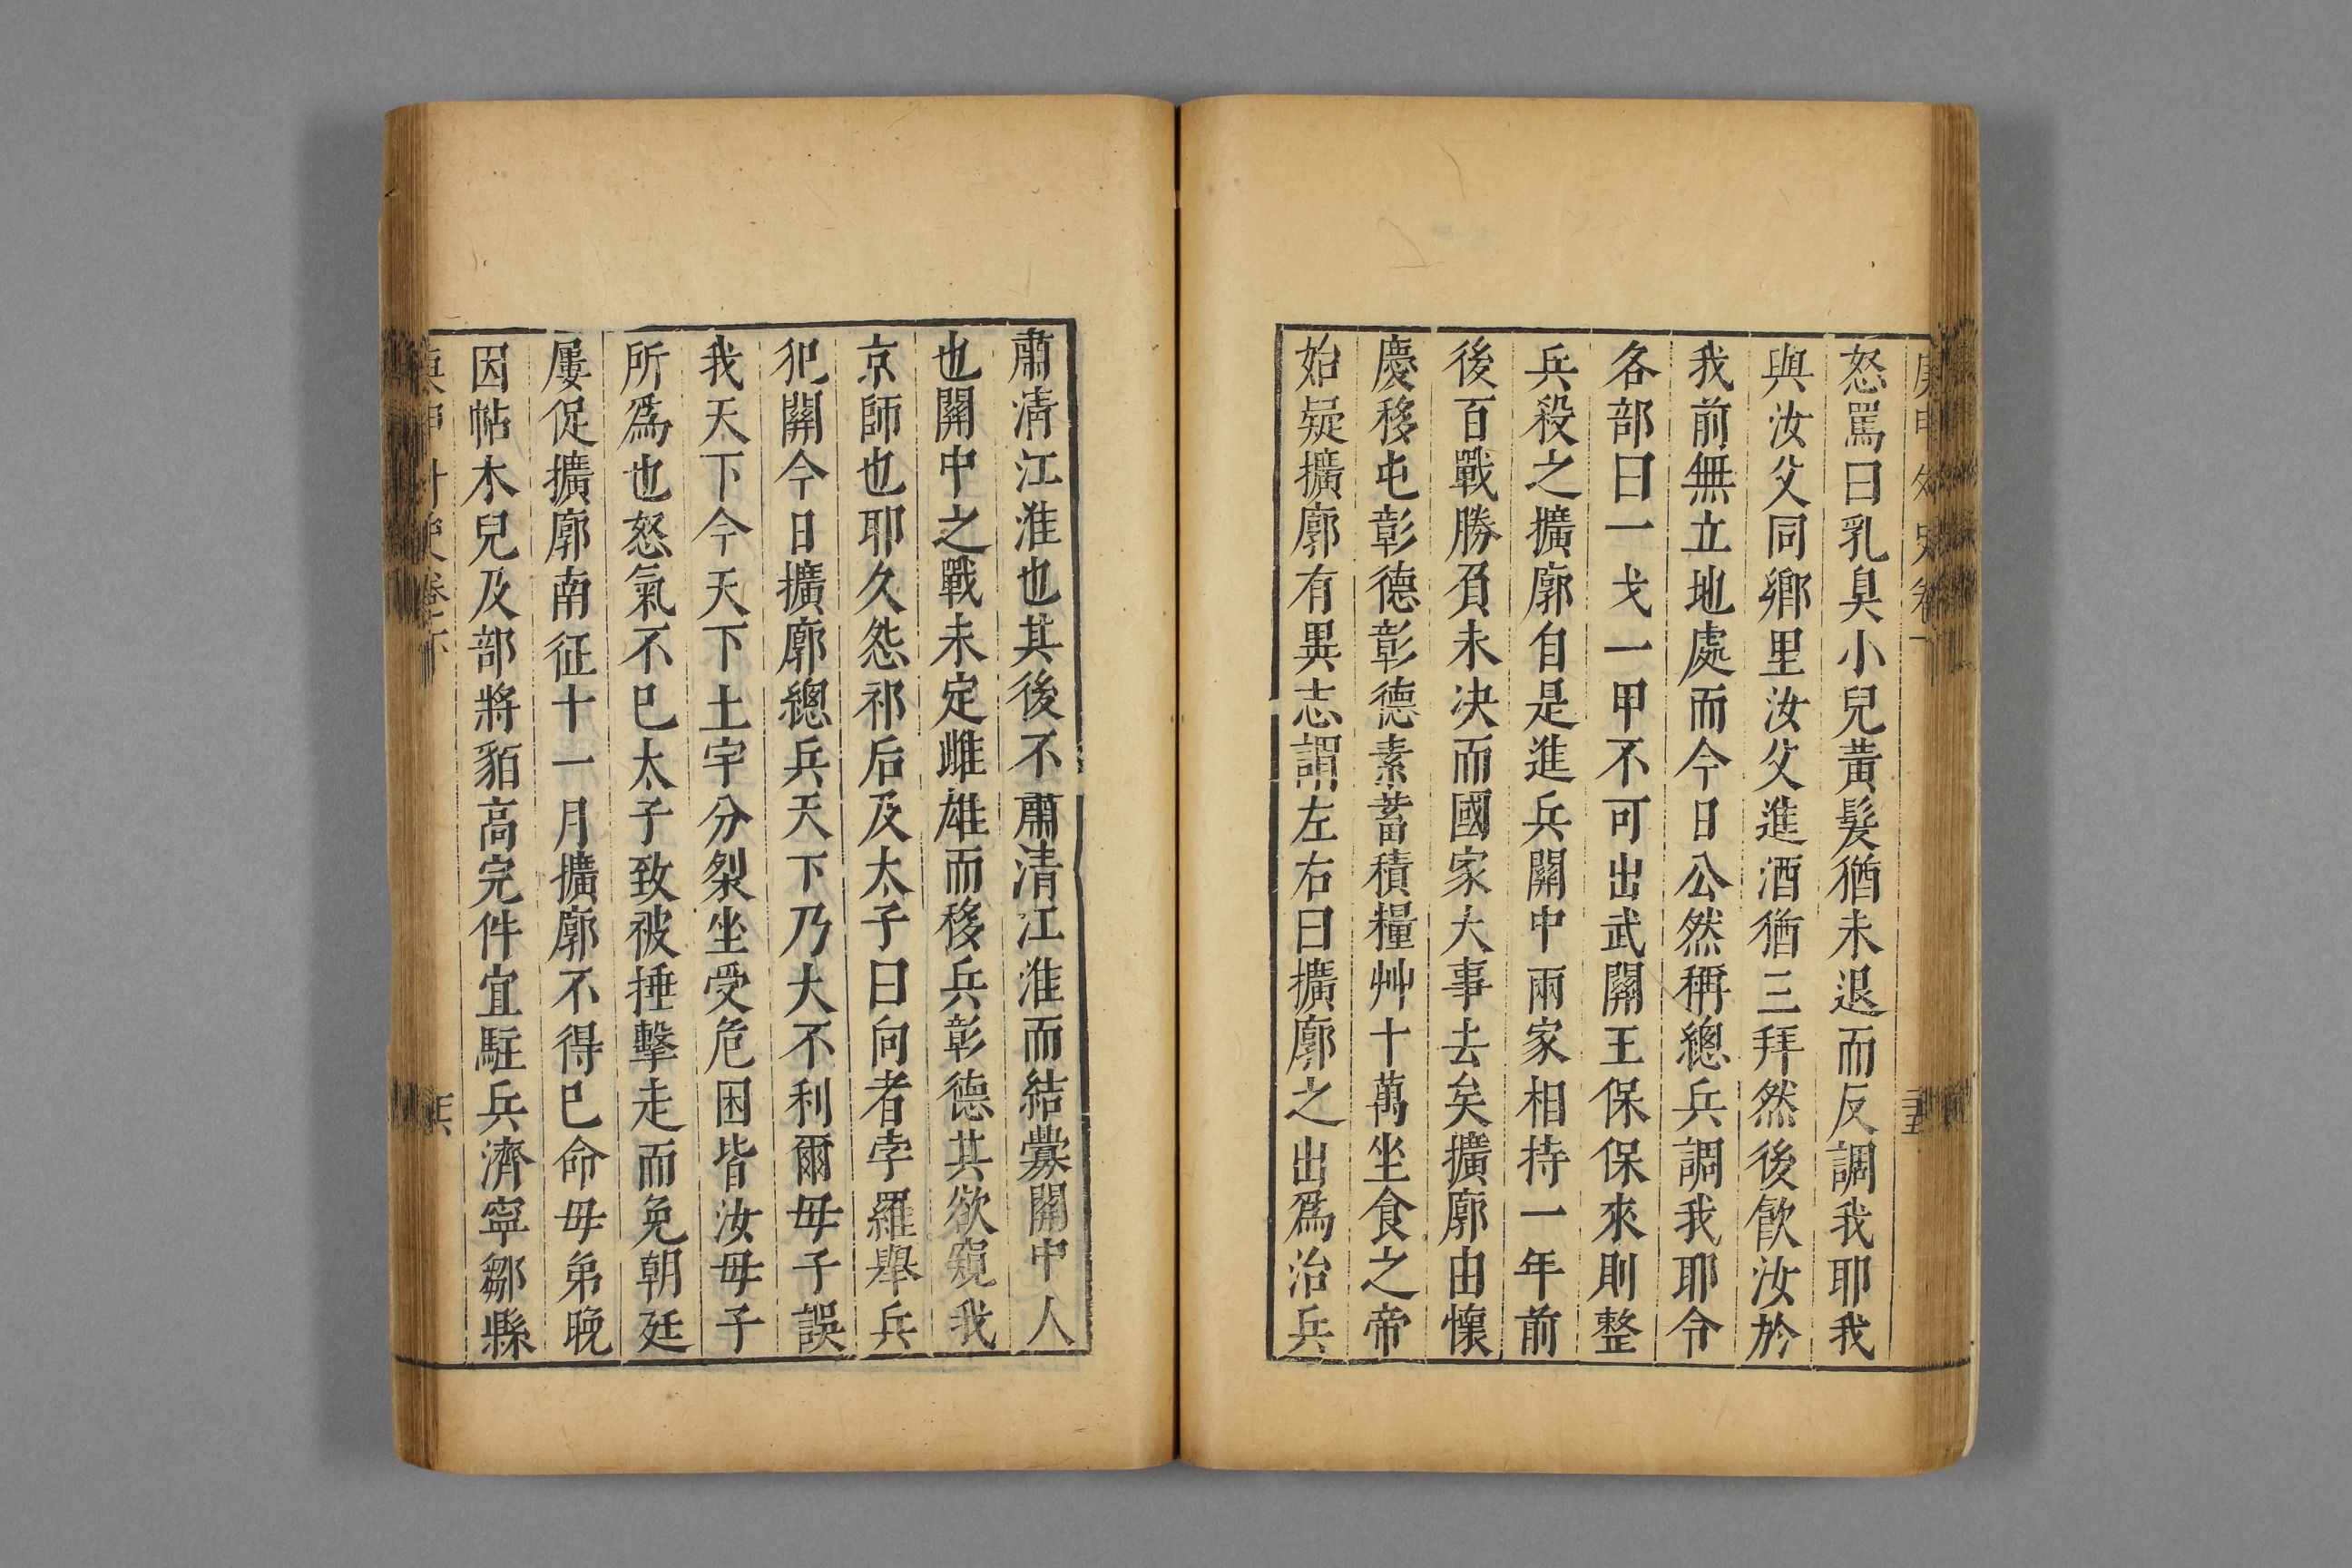 怒罵曰乳臭小兒黃髮猶未退而反調我耶我
與汝父同鄉里汝父進酒猶三拜然後飮汝於
我前無立地處而今日公然稱總兵調我耶令
各部曰一戈一甲不可出武關王保保來則整
兵殺之擴廓自是進兵關中兩家相持一年前
後百戰勝負未决而國家大事去矣擴廓由懷
慶移屯彰德彰德素蓄積糧艸十萬坐食之帝
始疑擴廓有異志謂左右曰擴廓之出爲治兵
肅清江淮也其後不肅清江淮而結釁關中人
也關中之戰未定雌雄而移兵彰德其欲窺我
京師也耶久怨祁后及太子曰向者孛羅舉兵
犯闕今日擴廓總兵天下乃大不利爾毋子誤
我天下今天下土宇分裂坐受危困皆汝毋子
所爲也怒氣不已太子致被捶擊走而免朝廷
屢促擴廓南征十一月擴廓不得已命毋弟晚
因帖木兒及部將貊高完仵宜駐兵濟寧鄒縣